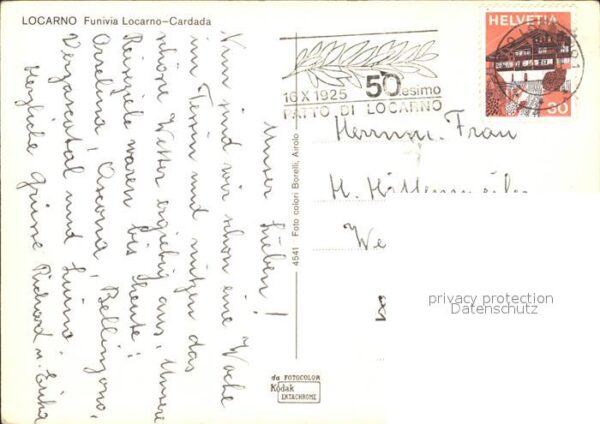 LOCARNO Funivia Locarno-Cardada
Unser Lieben!
Nun sind wir schon eine Woche
im Tessin und nützen das
schöne Wetter ergiebig aus. Unsere
Reiseziele waren bis heute:
Ascona, Bellinzona,
Verzascatal und Luino.
Herzliche Grüsse Richard u. Erika
4541 Foto colori Borelli, Airolo
da FOTOCOLOR
Kodak
EKTACHROME
16 X 1925 50esimo
PATTO DI LOCARNO
HELVETIA
30
Herrn u. Frau
H.
We
privacy protection
Datenschutz